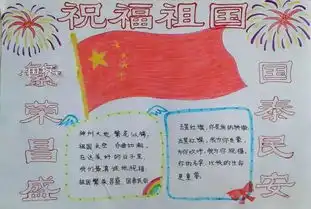 祝福祖国
繁荣昌盛
国泰民安
神州大地 繁花似锦,
祖国长空 乐曲如潮,
在这美好的日子里,
我们要真诚地祝福,
祖国繁荣昌盛 国泰民安
五星红旗,你是我的骄傲
五星红旗,我为你自豪,
为你欢呼,我为你祝福,
你的名字,比我的生命
更重要。